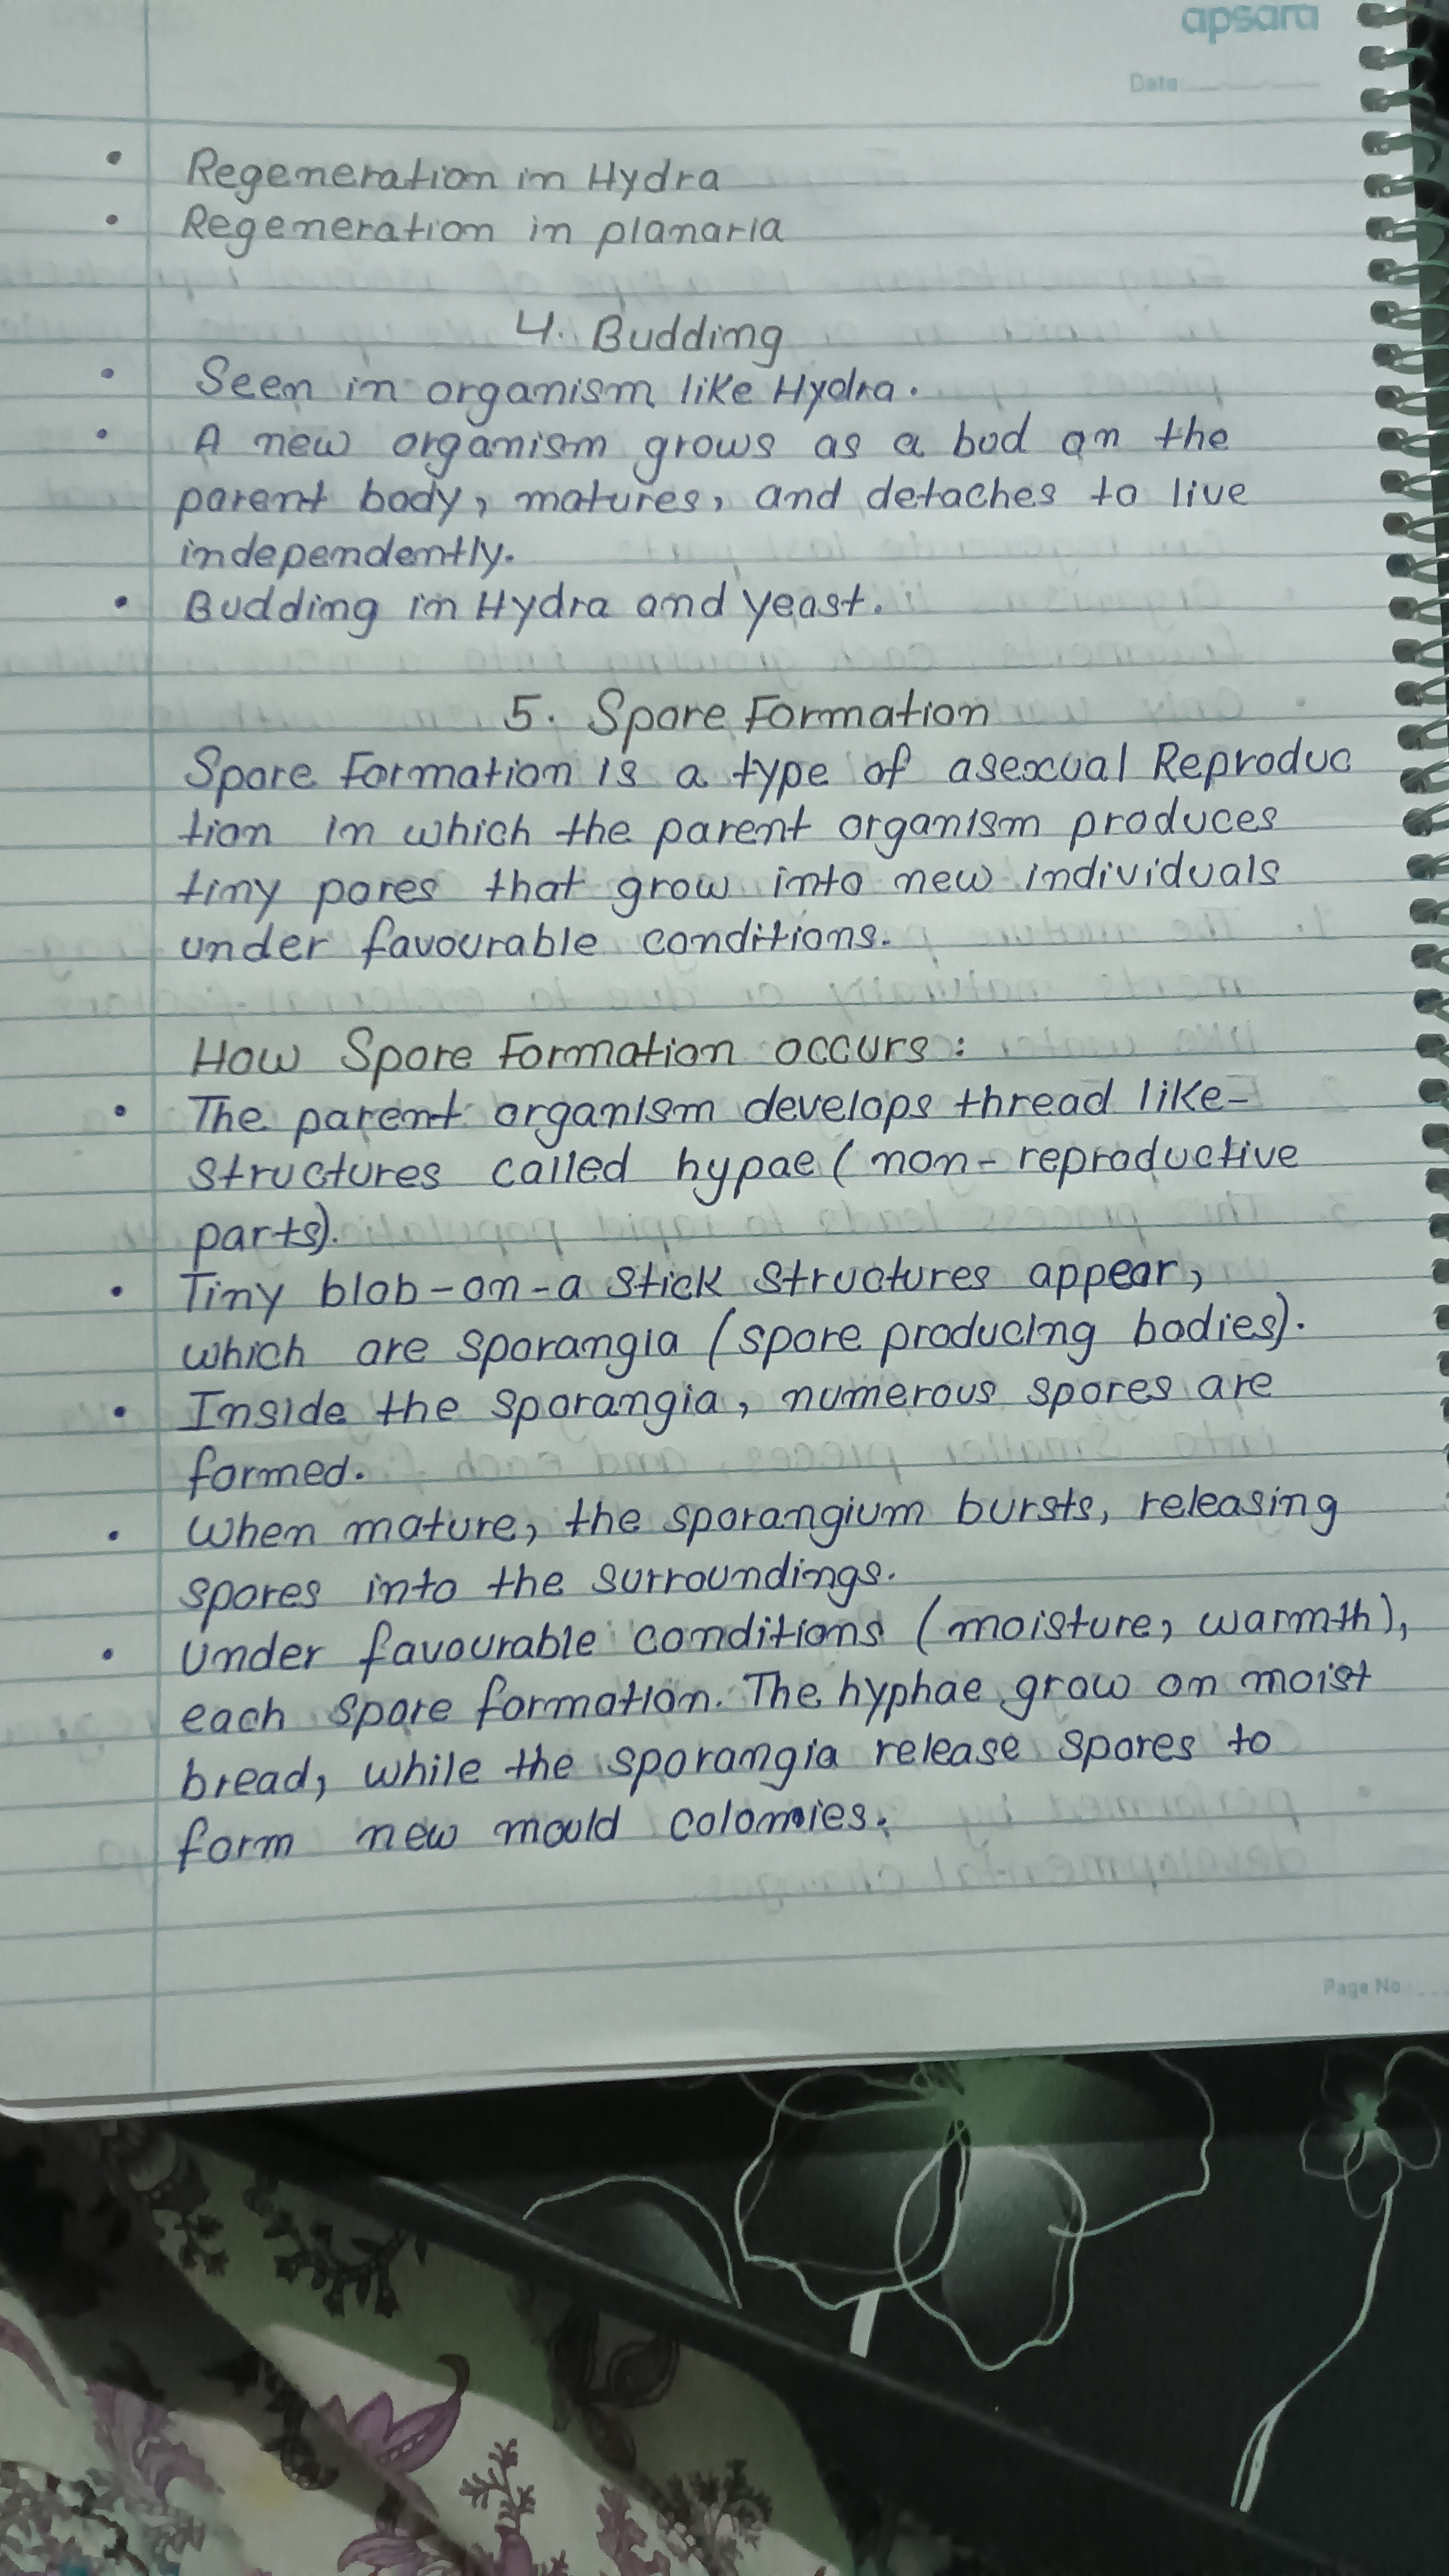 apsara
Date
Regeneration in Hydra
Regeneration in planaria
4. Budding
Seen in organism like Hydra.
A new organism grows as a bud on the
parent body, matures, and detaches to live
independently.
Budding in Hydra and yeast.
5. Spore Formation
Spore Formation is a type of asexual Reproduc
tion in which the parent organism produces
tiny pores that grow into new individuals
under favourable conditions.
How Spore Formation occurs:
The parent organism develops thread like-
structures called hypae (non-reproductive
parts).
Tiny blob-on-a stick structures appear,
which are sporangia (spore producing bodies).
Inside the sporangia, numerous spores are
formed.
When mature, the sporangium bursts, releasing
spores into the surroundings.
Under favourable conditions (moisture, warmth),
each spore formation. The hyphae grow on moist
bread, while the sporangia release spores to
form new mould colonies.
Page No.